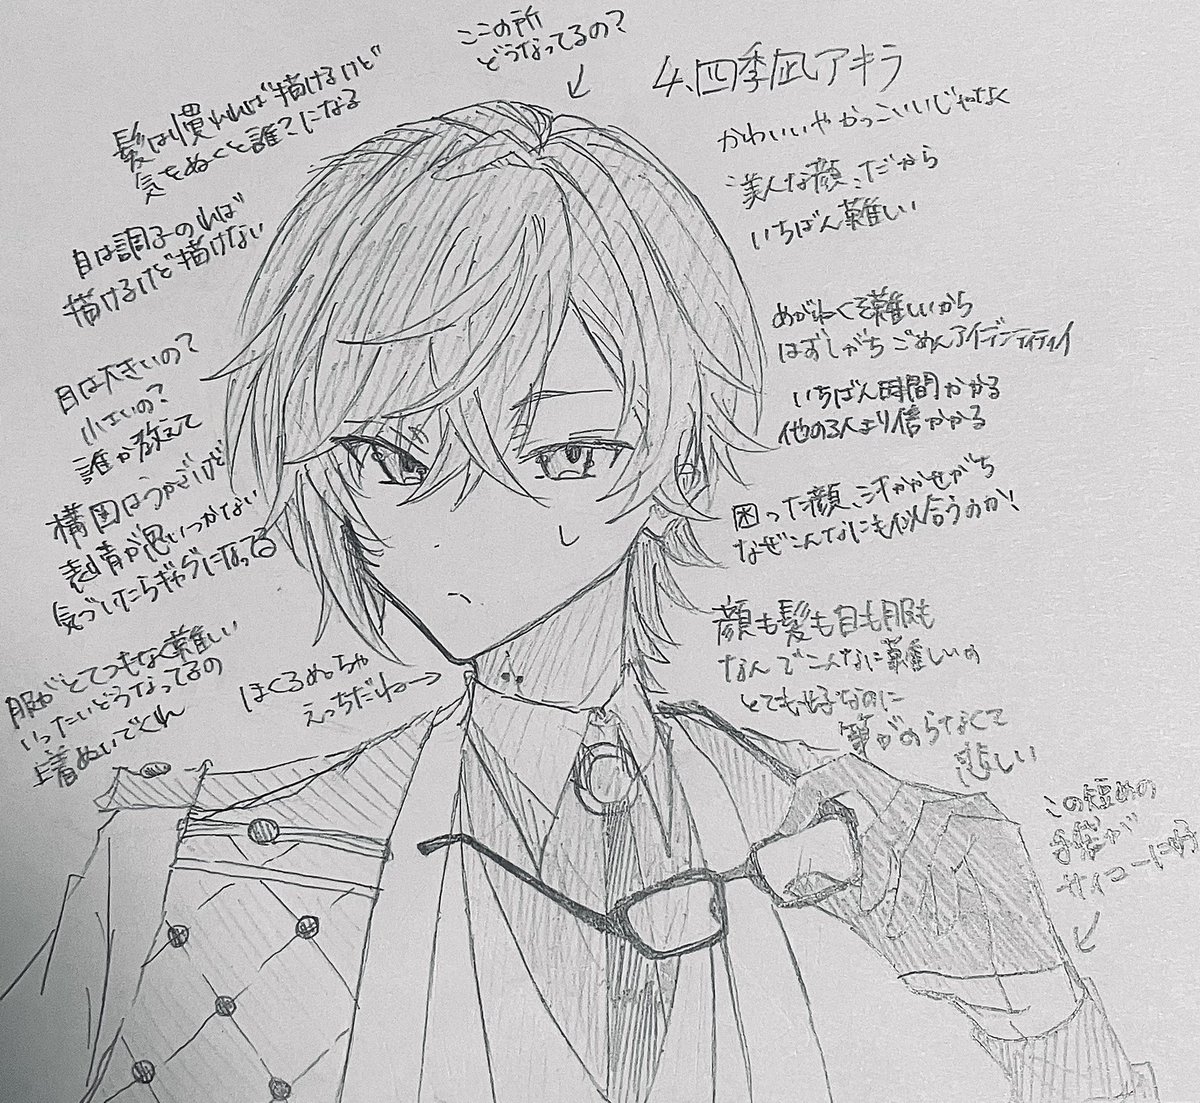 ここの所
どうなってるの?
4、四季凪アキラ
かわいいやかっこいいじゃなく
"美人な顔"だから
いちばん難しい
めがねくそ難しいから
はずしがち ごめんアイデンティティ
いちばん時間かかる
他の3人より倍かかる
困った顔、汗かかせがち
なぜこんなにも似合うのか!
顔も髪も目も服も
なんでこんなに難しいの
とても好なのに
筆がのらなくて
悲しい
この短めの
手袋が
サイコーに
髪は慣れれば描けるけど
気をぬくと誰?になる
目は調子のれば
描けるけど描けない
目は大きいの?
小さいの?
誰か教えて
構図はうかぶけど
表情が思いつかない
気づいたらギャグになってる
服がとてつもなく難しい
いったいどうなってるの
上着ぬいでくれ
ほくろめっちゃ
えっちだね